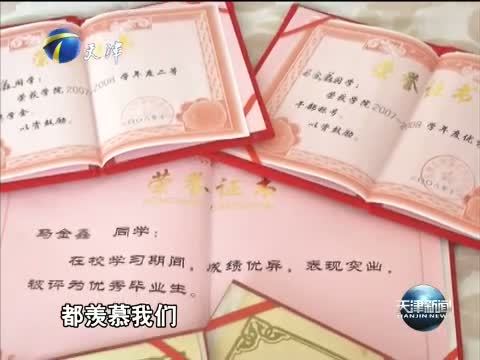 天津
荣誉证书
鑫同学:
荣获学院2007-2008学年度二等
学金。
以资鼓励。
荣誉证书
金鑫同学:
荣获学院2007-2008学年度优
干部称号。
以资鼓励。
二〇〇八年十
荣誉证书
马金鑫 同学:
在校学习期间,成绩优异,表现突出,
被评为优秀毕业生。
都羡慕我们
天津新闻
TIANJIN NEWS